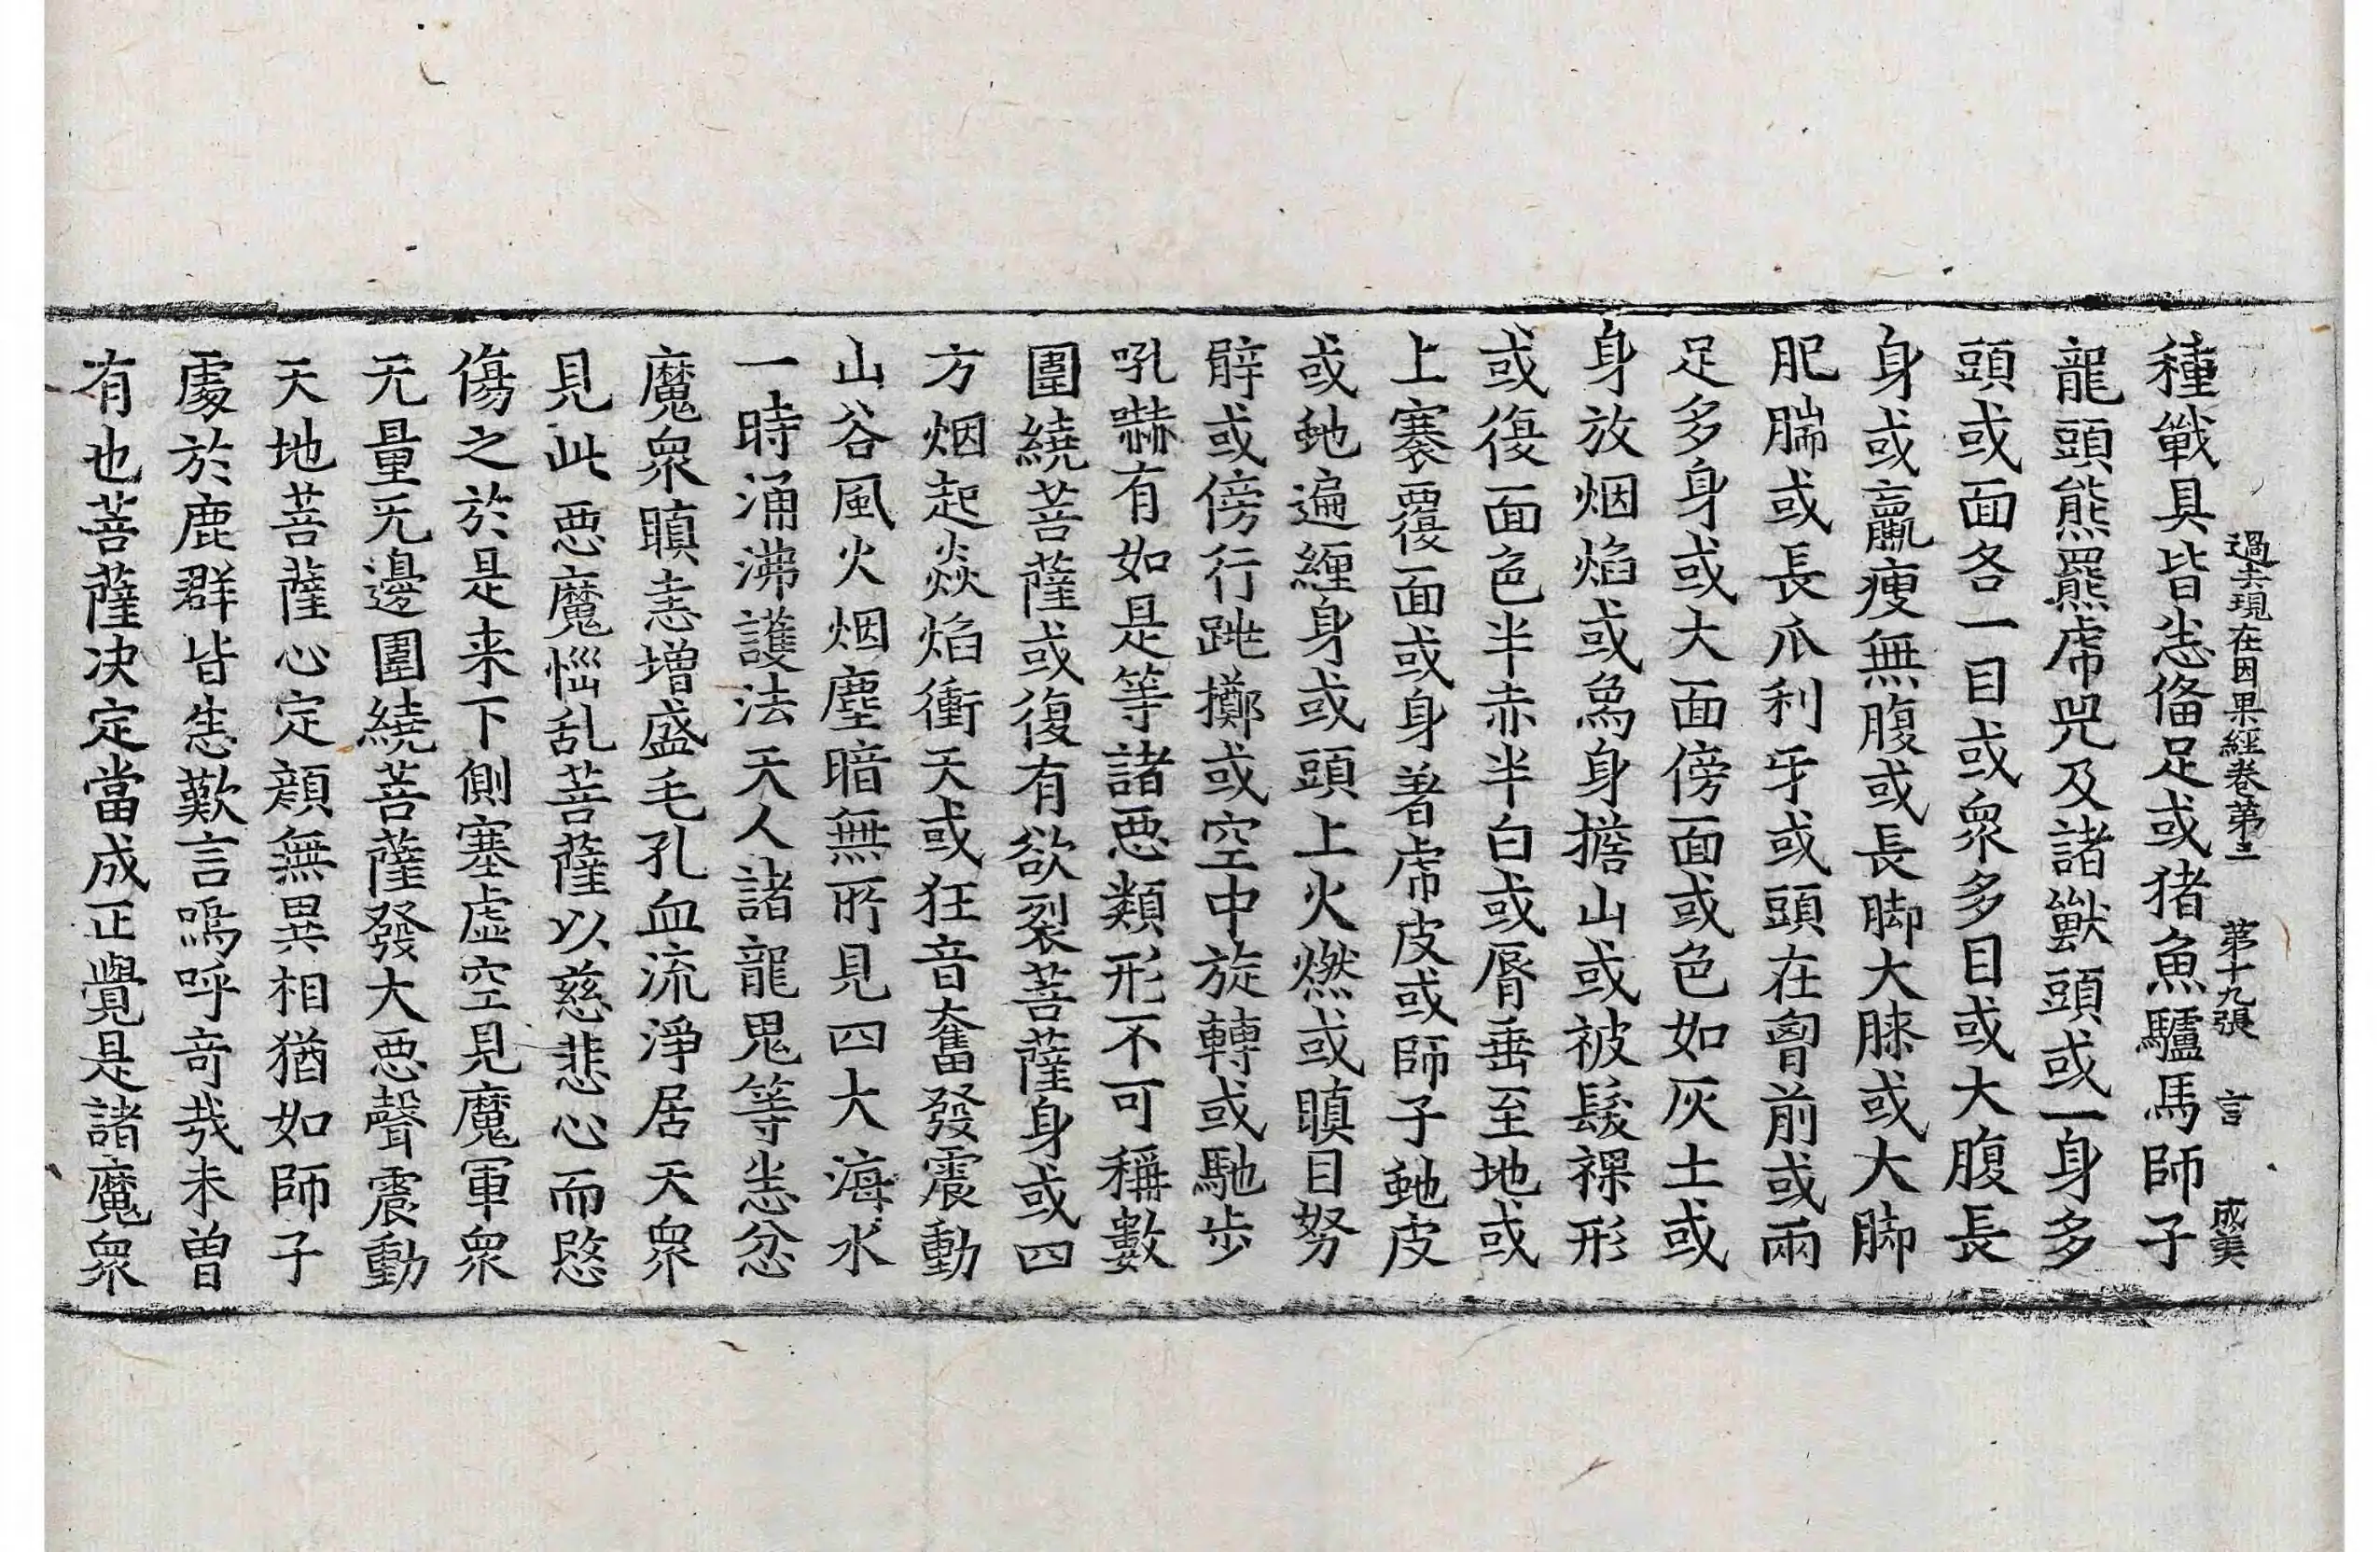 過去現在因果經卷第三 第十九張 言 成美
種戰具皆悉俻足或猪魚驢馬師子
龍頭熊羆虎兕及諸獸頭或一身多
頭或面各一目或衆多目或大腹長
身或羸瘦無腹或長脚大膝或大脚
肥腨或長爪利牙或頭在胷前或兩
足多身或大面傍面或色如灰土或
身放烟焰或象身擔山或被髮裸形
或復面色半赤半白或脣垂至地或
上褰覆面或身著虎皮或師子虵皮
或虵遍纒身或頭上火燃或瞋目努
臂或傍行跳擲或空中旋轉或馳步
吼嚇有如是等諸惡類形不可稱數
圍繞菩薩或復有欲裂菩薩身或四
方烟起焱焰衝天或狂音奮發震動
山谷風火烟塵暗無所見四大海水
一時涌沸護法天人諸龍鬼等悉忿
魔衆瞋恚增盛毛孔血流淨居天衆
見此惡魔惱乱菩薩以慈悲心而愍
傷之於是来下側塞虛空見魔軍衆
无量无邊圍繞菩薩發大惡聲震動
天地菩薩心定顔無異相猶如師子
處於鹿群皆悉歎言嗚呼奇㢤未曾
有也菩薩决定當成正覺是諸魔衆